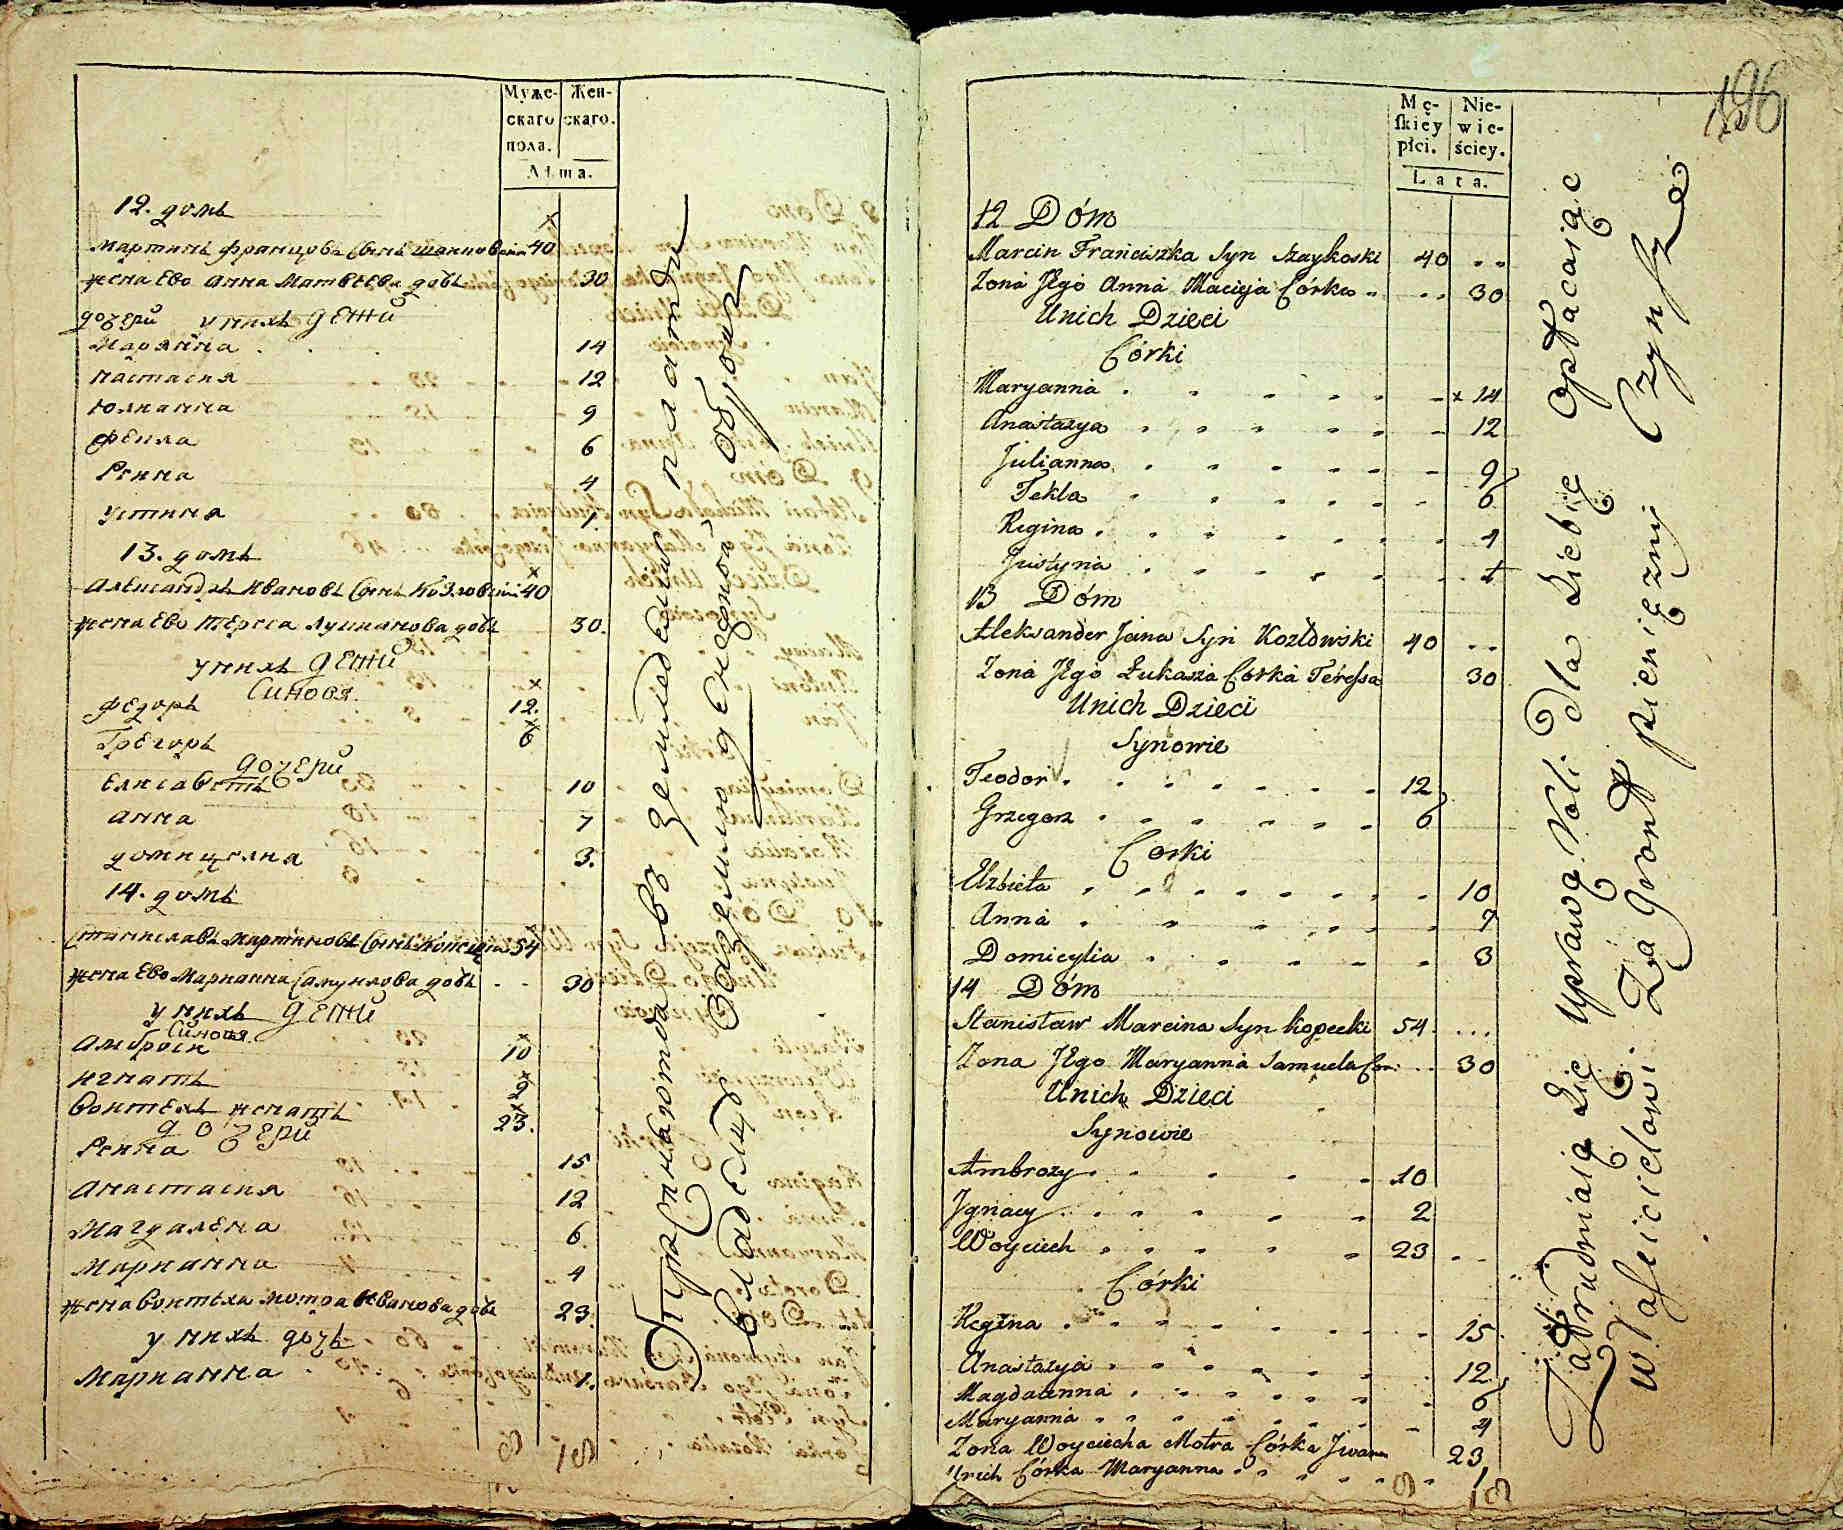 Муже-
скаго
пола.
Жен-
скаго.
Лѣта.
12. домъ
Мартинъ францовъ Сынъ шаиковскии 40
жена Ево Анна Матвѣева дочь 30
дочери у нихъ дети
Марянна 14
настасия 12
Юлианна 9
фекла 6
Регина 4
устина 1
13. домъ
Александръ Ивановъ Сынъ Козловскии 40
жена Ево Тереса лукианова дочь 30.
у нихъ дети
Синовя
федоръ 12.
Грегоръ 6
дочери
Елисаветъ 10
анна 7
домицелия 3.
14. домъ
Станиславъ мартиновъ Сынъ Копецки 54
жена Ево Марианна Самуилова дочь 30
у нихъ дети
Синовя
Амброси 10
игнатъ 2
воитехъ женатъ 23.
дочери
Регина 15
Анастасия 12
Магдалена 6
Марианна 4
жена воитеха мотра Иванова дочь 23.
у нихъ дочь
Марианна 1.
8 18
Упражнаются въ земледелии платятъ
владельцу за землю денежной оброкъ
196
Mę-
skiey
płci.
Nie-
wie-
ściey.
Lata.
12 Dóm
Marcin Franciszka Syn Szaykoski 40
Zona Jego Anna Macieja Córka 30
Unich Dzieci
Córki
Maryanna 14
Anastazya 12
Julianna 9
Tekla 6
Regina 4
Justyna 1
13 Dóm
Aleksander Jana Syn Kozłowski 40
Zona Jego Łukasza Córka Téressa 30
Unich Dzieci
Synowie
Teodor 12
Grzegorz 6
Corki
Elzbieta 10
Anna 7
Domicylia 3
14 Dóm
Stanisław Marcina Syn Kopecki 54
Zona Jego Maryanna Samuela Cor: 30
Unich Dzieci
Synowie
Ambrozy 10
Jgnacy 2
Woyciech 23
Córki
Regina 15
Anastazya 12
Magdalenna 6
Maryanna 4
Zona Woyciecha Motra Córka Jwana 23
Unich Córka Maryanna 1
8 18
Zatrudniaią się uprawą Roli dla siebie Opłacaiąc
Właścicielowi Za Gront pieniężny Czynsz